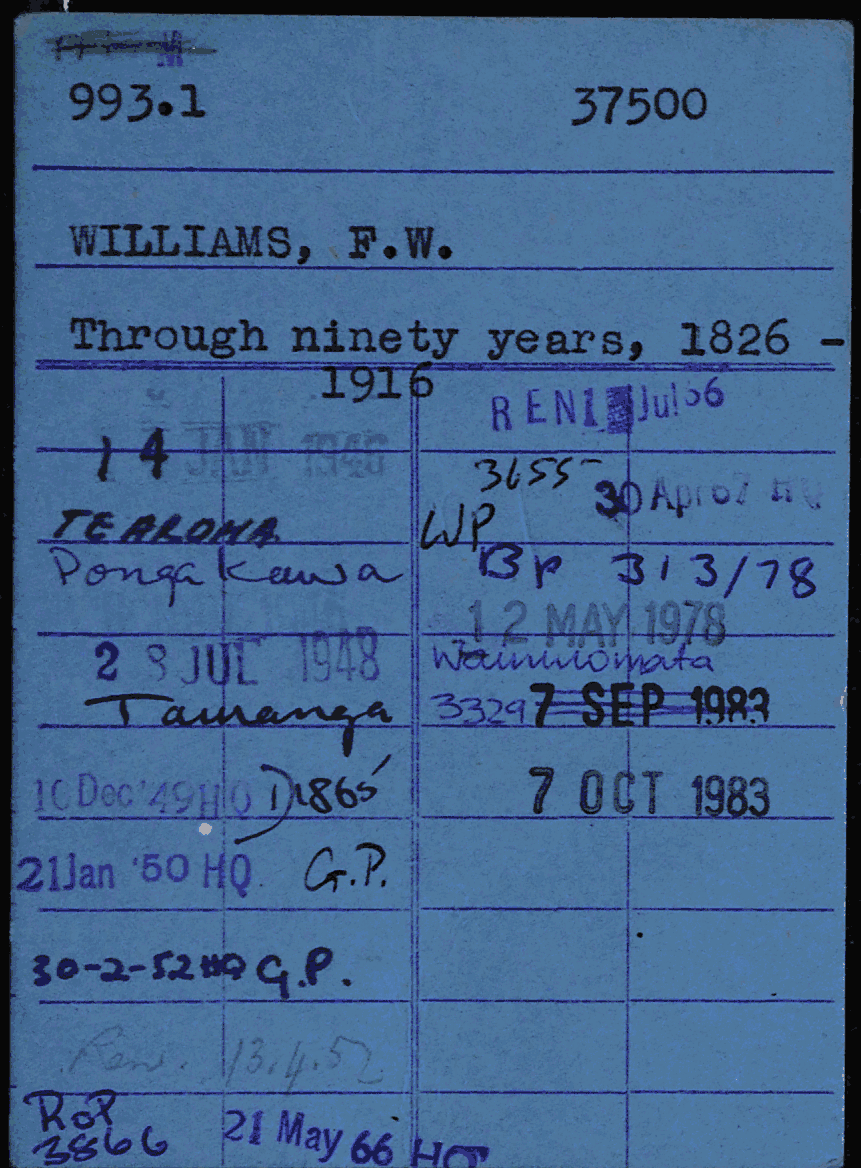 993.1 37500
WILLIAMS, F.W.
Through ninety years, 1826 -
1916
14 JAN 1946
TE AROHA
Ponga kawa
28 JUL 1948
Tauranga
10 Dec '49 HQ D1865
21 Jan '50 HQ. G.P.
30-2-52 HQ G.P.
Ren. 13.4.52
RoP
3866 21 May 66 HQ
REN 1 Jul 66
3655 30 Apr 67 HQ
WP
Bp 313/78
12 MAY 1978
Wainuiomata
3329 7 SEP 1983
7 OCT 1983